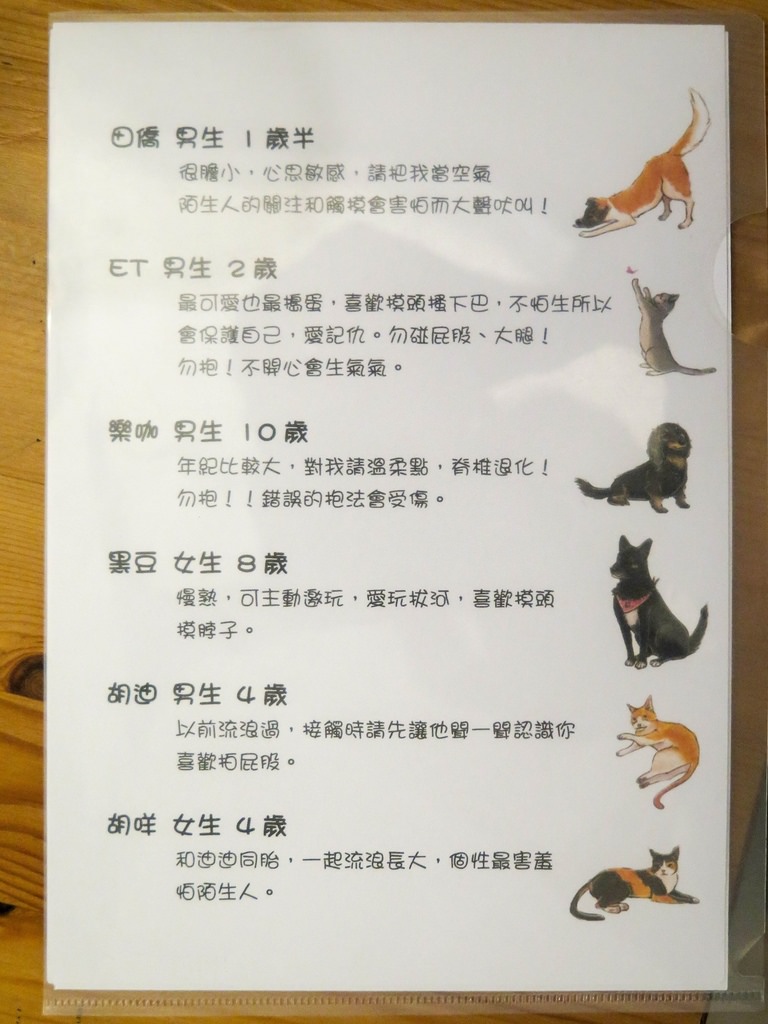 田僑 男生 1歲半
很膽小，心思敏感，請把我當空氣
陌生人的關注和觸摸會害怕而大聲吠叫！
ET 男生 2歲
最可愛也最搗蛋，喜歡摸頭搔下巴，不怕生所以
會保護自己，愛記仇。勿碰屁股、大腿！
勿抱！不開心會生氣氣。
樂咖 男生 10歲
年紀比較大，對我請溫柔點，脊椎退化！
勿抱！！錯誤的抱法會受傷。
黑豆 女生 8歲
慢熟，可主動邀玩，愛玩拔河，喜歡摸頭
摸脖子。
胡迪 男生 4歲
以前流浪過，接觸時請先讓他聞一聞認識你
喜歡拍屁股。
胡咩 女生 4歲
和迪迪同胎，一起流浪長大，個性最害羞
怕陌生人。